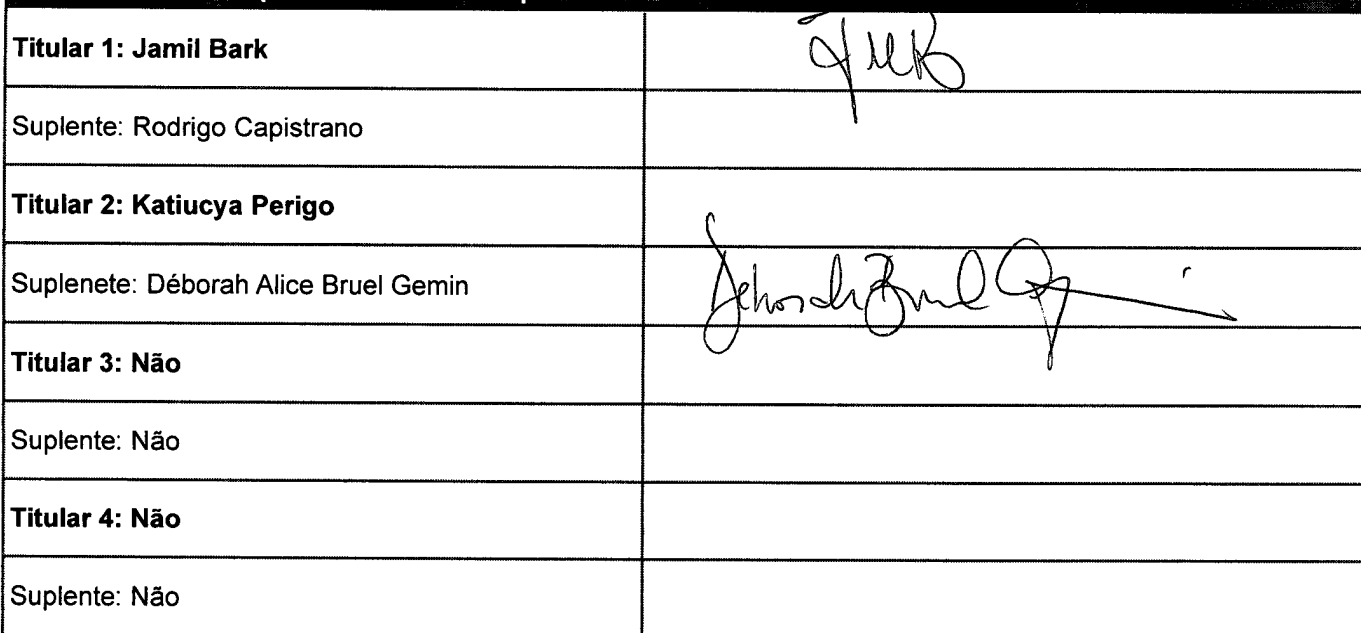 Titular 1: Jamil Bark
Suplente: Rodrigo Capistrano
Titular 2: Katiucya Perigo
Suplenete: Déborah Alice Bruel Gemin
Déborah Bruel
Titular 3: Não
Suplente: Não
Titular 4: Não
Suplente: Não